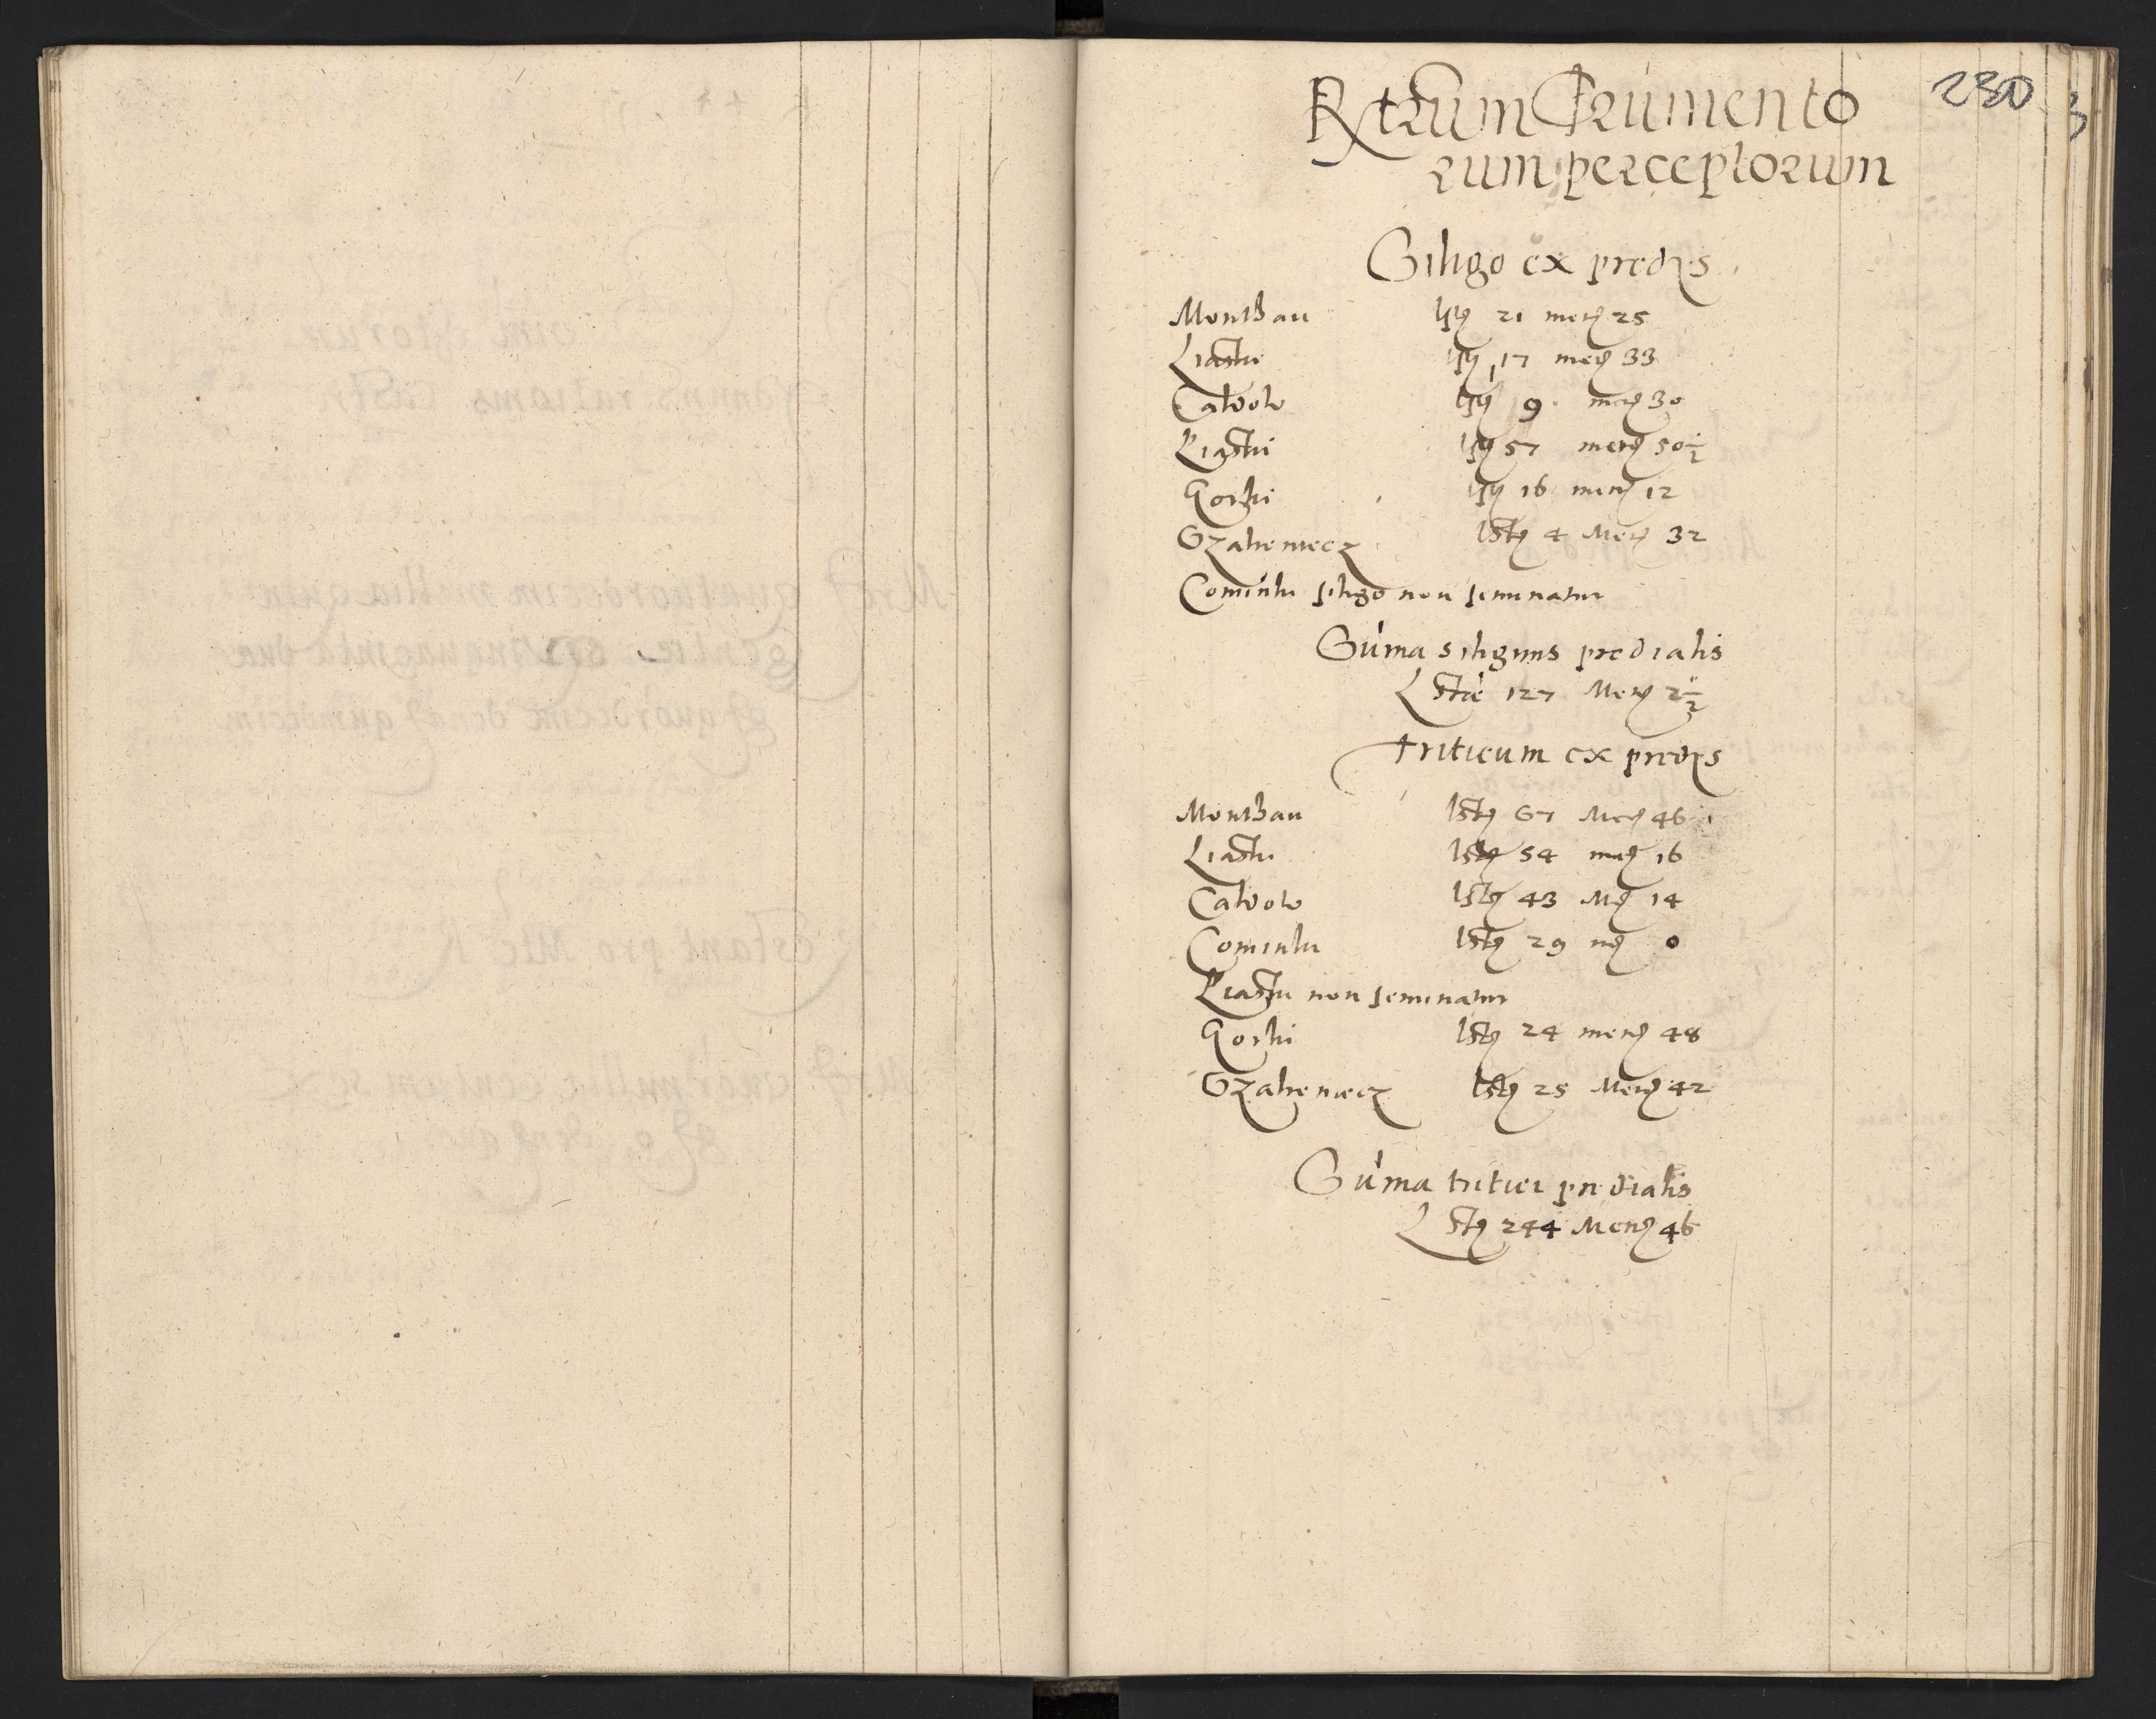 230
Rtrum Frumento
rum perceptorum
Siligo ex predys
Montkau lstg 21 mens 25
Liastki lstg 17 mens 33
Caldowo lstg 9 mens 30
Piastki lstg 57 mens 50½
Gorki lstg 16 mens 12
Szaleniecz lstg 4 Mens 32
Cominki siligo non seminatur
Suma siliginis predialis
Lstae 127 Mens 2½
Triticum ex predys
Montkau lstg 67 Mens 46
Liastki lstg 54 mens 16
Caldowo lstg 43 Mens 14
Cominki lstg 29 ms 0
Piastki non seminatur
Gorki lstg 24 mens 48
Szaleniecz lstg 25 Mens 42
Suma tritici predialis
Lstg 244 Mens 46